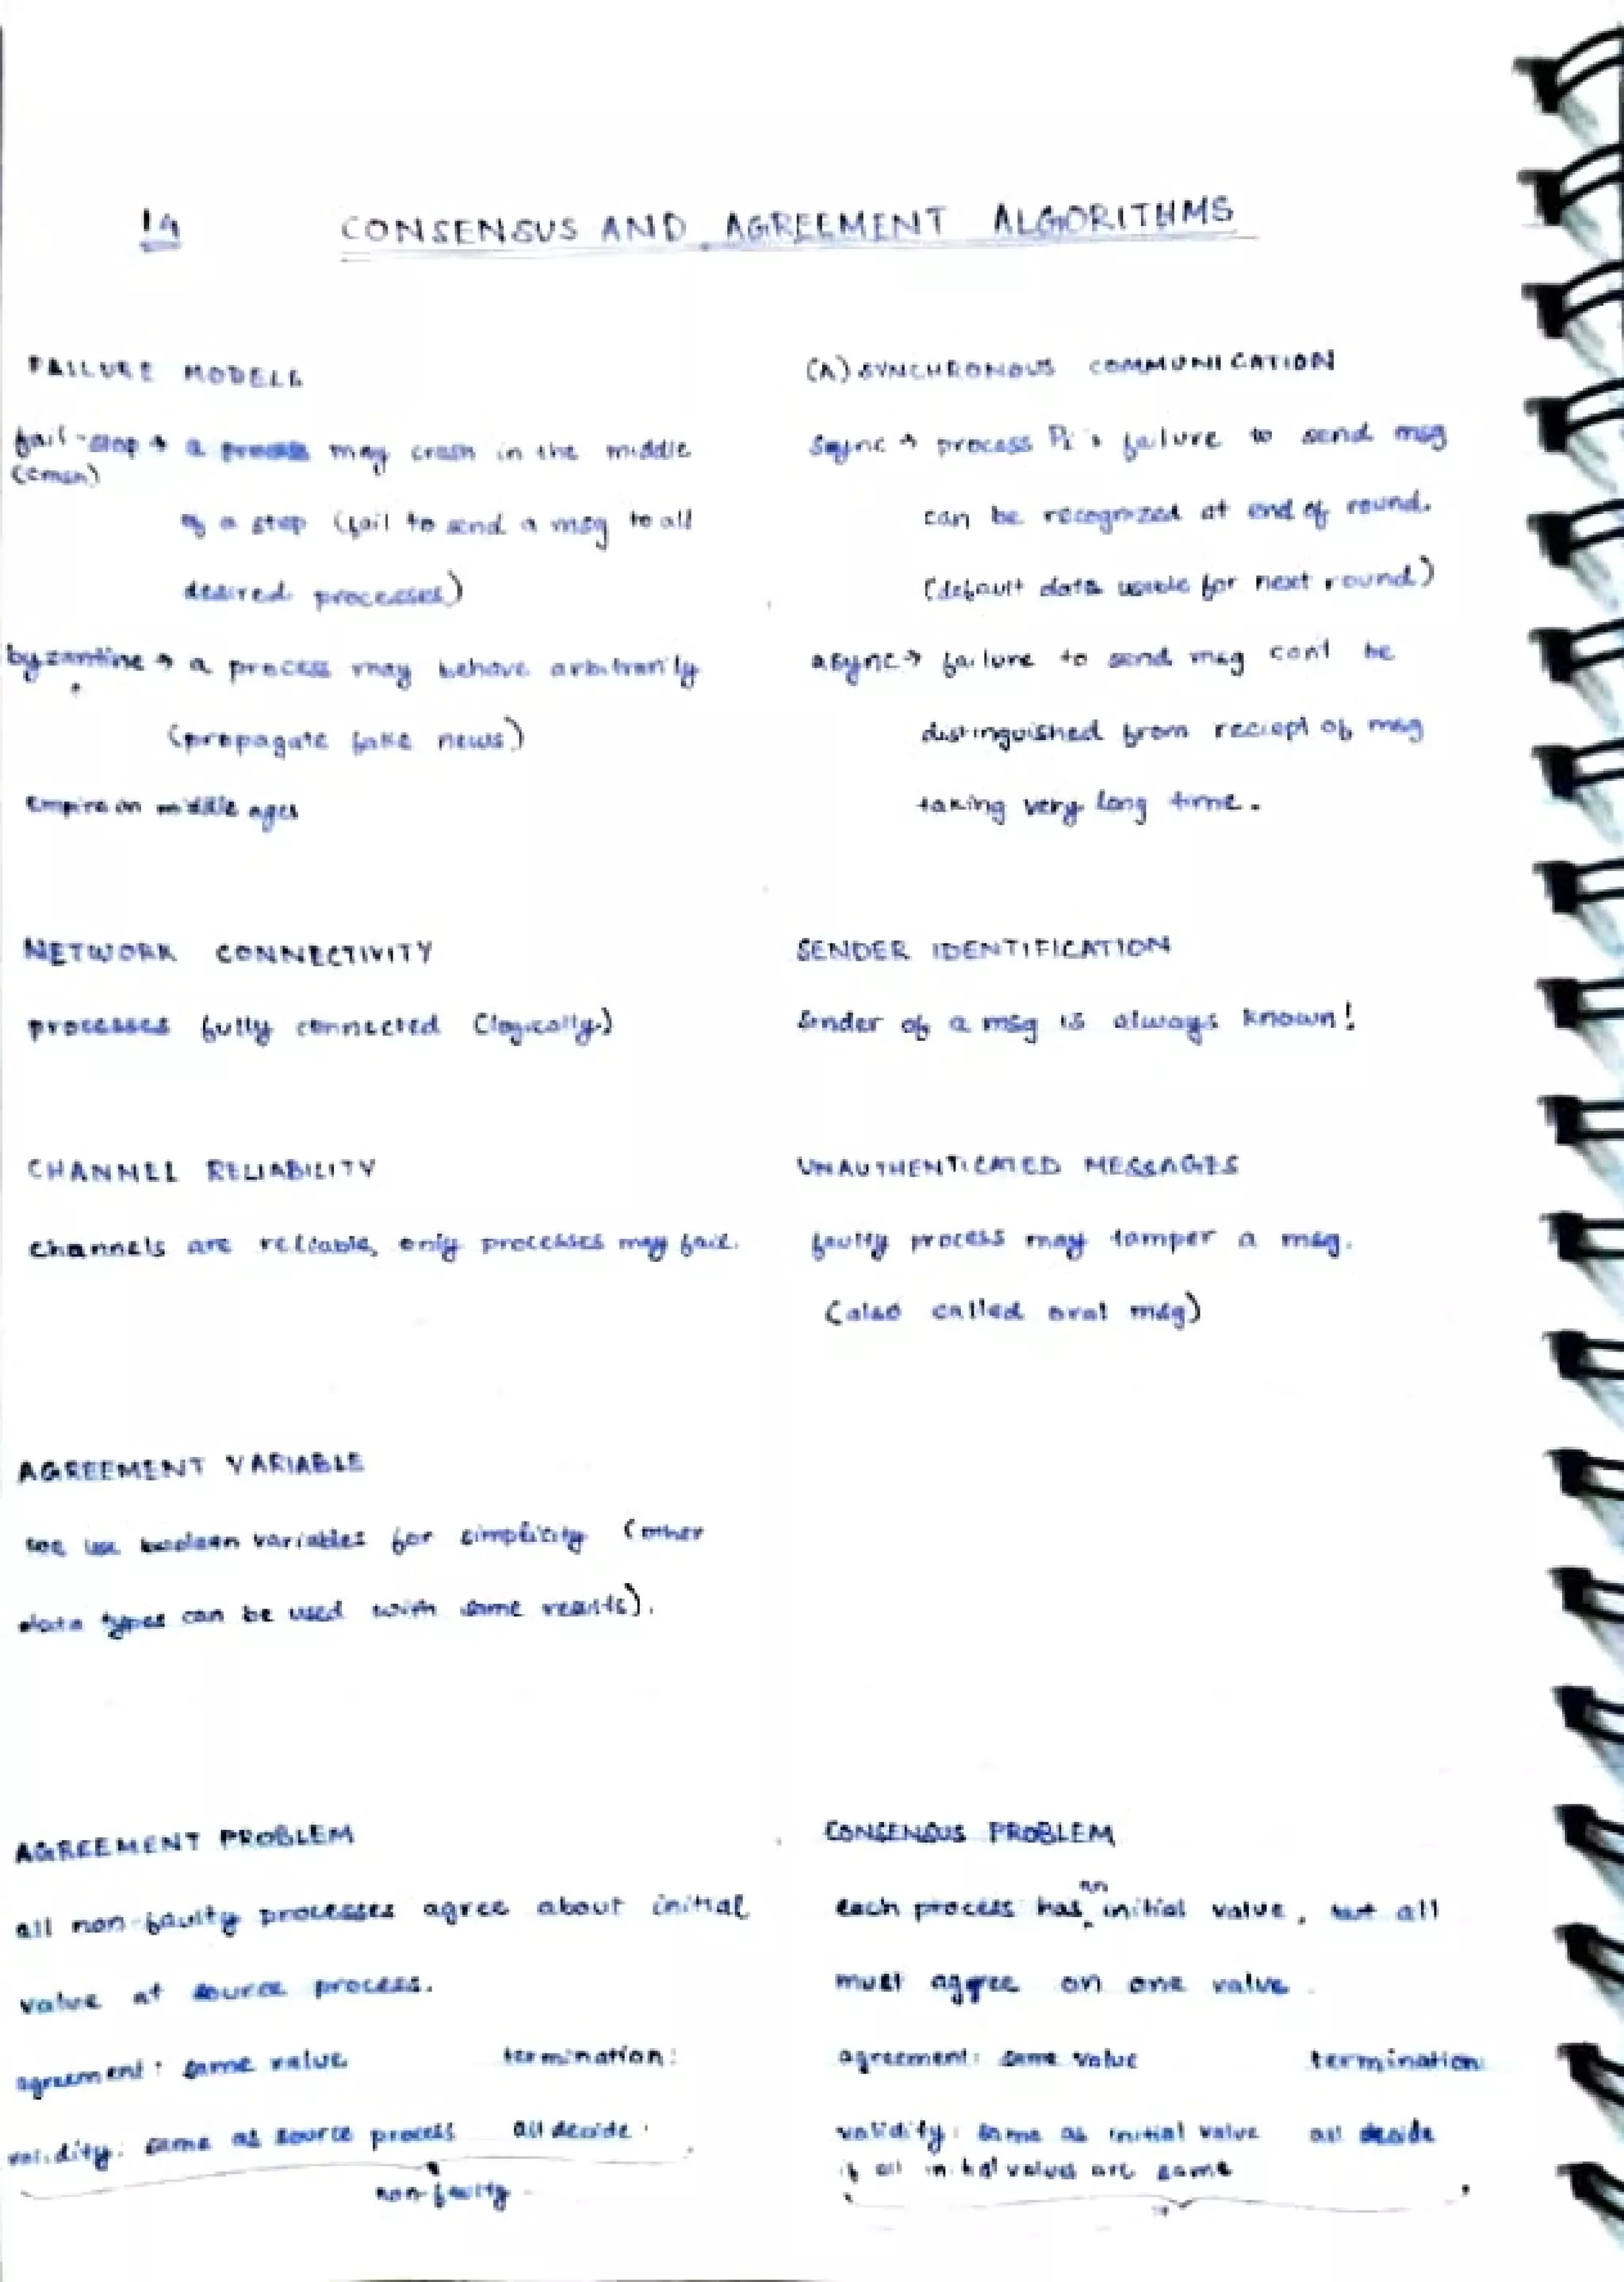 14 CONSENSUS AND AGREEMENT ALGORITHMS
FAILURE MODELS
fail-stop → a process may crash in the middle
of a step (fail to send a msg to all
desired processes)
byzantine → a process may behave arbitrarily
(propagate fake news)
Empire in middle ages
(A) SYNCHRONOUS COMMUNICATION
Sync → process Pi's failure to send msg
can be recognized at end of round.
(default data usable for next round)
async → failure to send msg can't be
distinguished from reciept of msg
taking very long time.
NETWORK CONNECTIVITY
processes fully connected (logically)
SENDER IDENTIFICATION
Sender of a msg is always known!
CHANNEL RELIABILITY
channels are reliable, only processes may fail.
UNAUTHENTICATED MESSAGES
faulty process may tamper a msg.
(also called oral msg)
AGREEMENT VARIABLE
use boolean variables for simplicity (other
data types can be used with same results).
AGREEMENT PROBLEM
all non-faulty processes agree about initial
value at source process.
agreement: same value termination:
validity: same as source process all decide.
non-faulty
CONSENSUS PROBLEM
each process has an initial value, but all
must agree on one value.
agreement: same value termination:
validity: same as initial value all decide
if all initial values are same